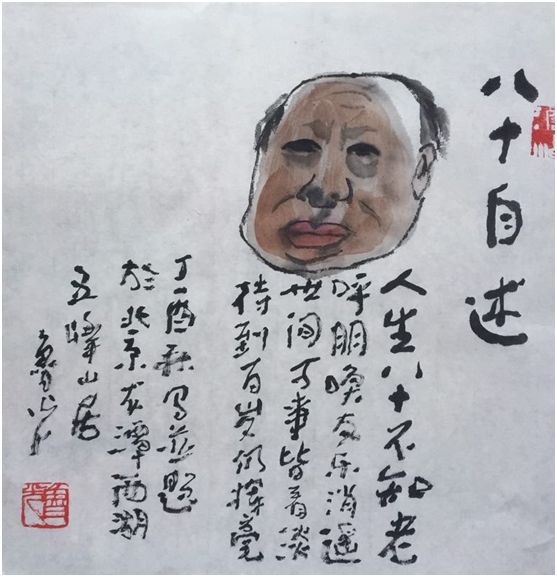 八十自述
人生八十不知老
呼朋唤友乐消遥
世间万事皆看淡
待到百岁仍挥毫
丁酉秋写并题
於北京龙潭西湖
五峰山居
鲁光
鲁光